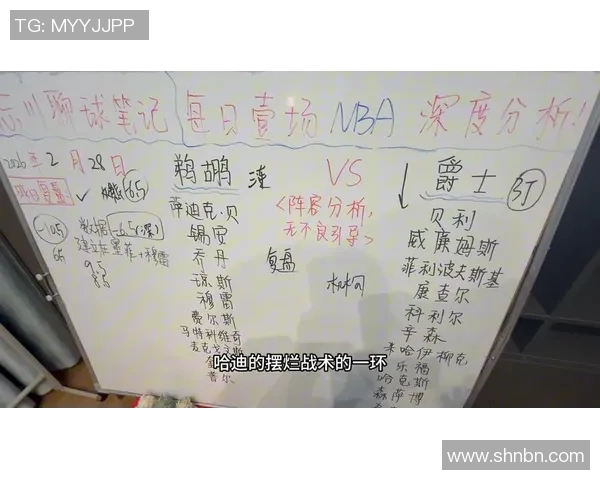 TG: MYYJJPP
忘川聊球笔记 每日壹场 NBA 深度分析!
2026年2月28日
鹈鹕
VS
爵士
昨日复盘 ✓
65
<阵容分析,
无不良引导>
复盘
-10.5
数据
-6.5(深)
66
建立在墨菲+穆雷
9.5
8.5
萨迪克·贝
锡安
乔丹
琼斯
穆雷
费尔斯
马特科维奇
麦克戈文
普尔
贝利
威廉姆斯
菲利波夫斯基
康查尔
科利尔
辛森
米哈伊柳克
乐福
哈克斯
森萨博
哈迪的摆烂战术的一环
www.shnbn.com